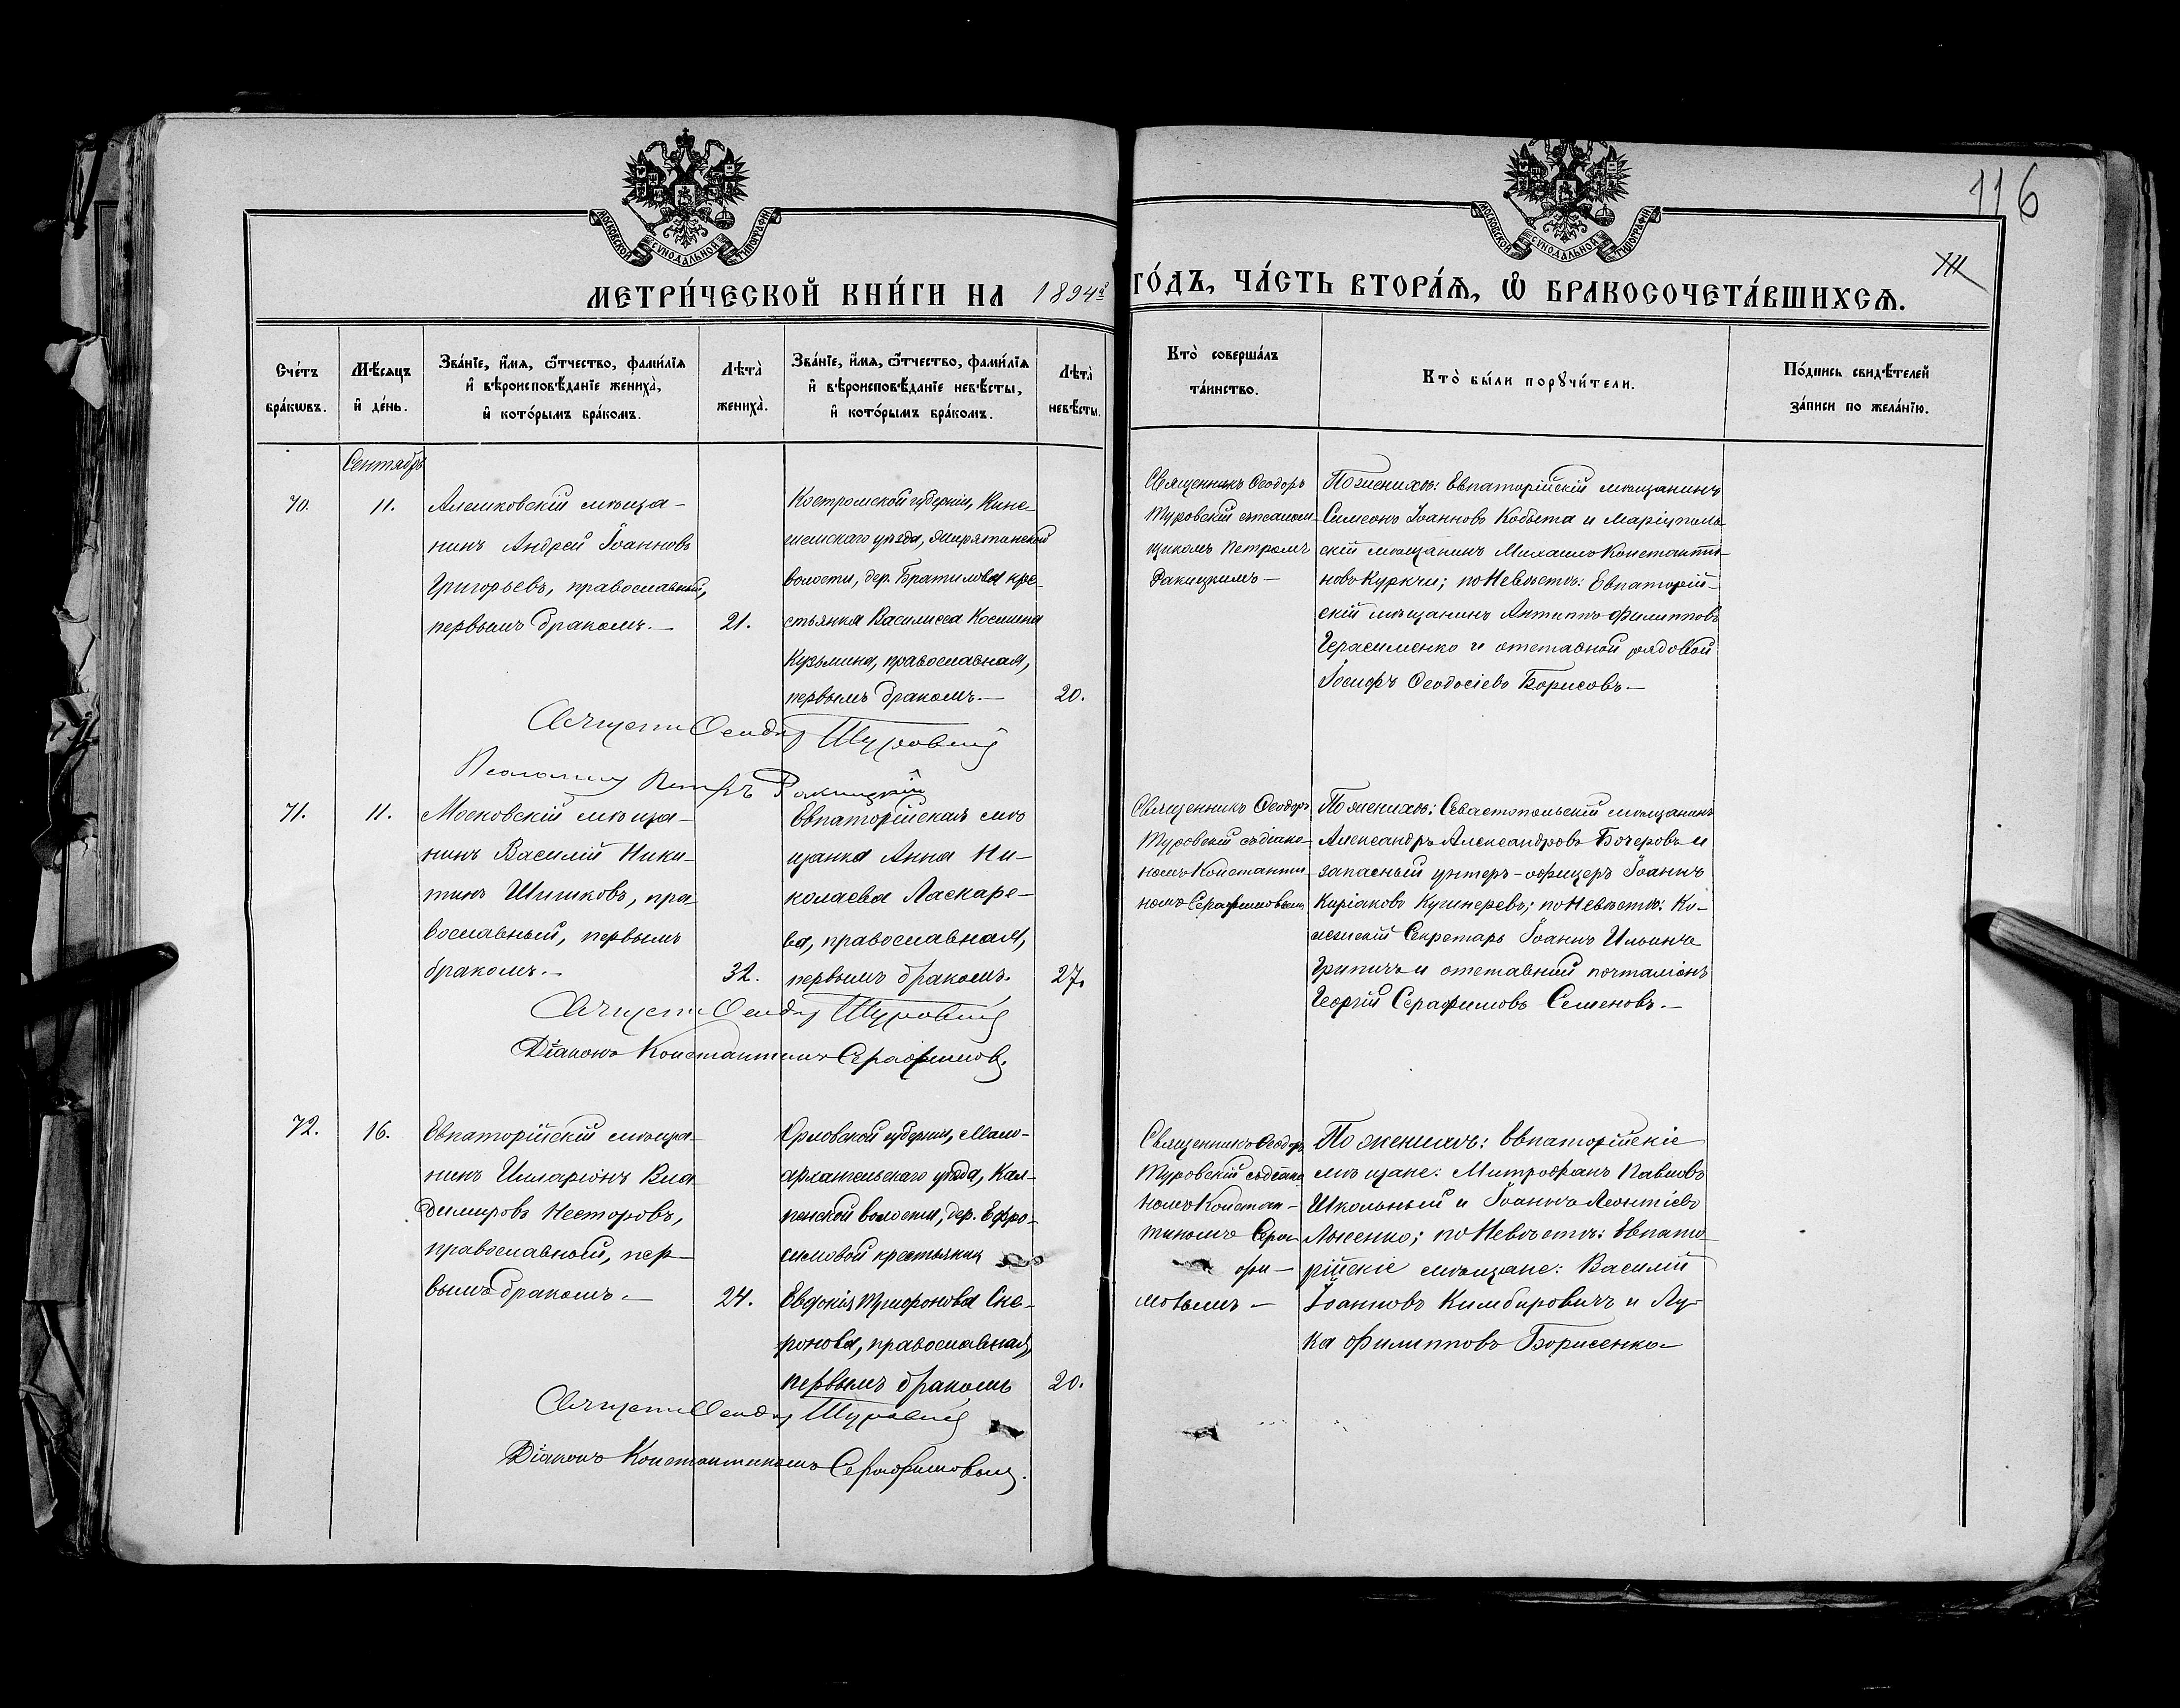 116
МОСКОВСКОЙ СУНОДАЛЬНОЙ ТИПОГРАФІИ
МОСКОВСКОЙ СУНОДАЛЬНОЙ ТИПОГРАФІИ
МЕТРИ́ЧЕСКОЙ КНИ́ГИ НА 1894й
ГО́ДЪ, ЧА́СТЬ ВТОРА́Ѧ, Ѽ БРАКОСОЧЕТА́ВШИХСѦ.
Сче́тъ бра́кѡвъ.
Мѣ́сѧцъ и҆ де́нь.
Зва́нїе, и҆́мѧ, ѻ҆́тчество, фами́лїѧ
и҆ вѣроисповѣ́данїе жениха̀,
и҆ кото́рымъ бра́комъ.
Лѣ́та̀ жениха̀.
Зва́нїе, и҆́мѧ, ѻ҆́тчество, фами́лїѧ
и҆ вѣроисповѣ́данїе невѣ́сты,
и҆ кото́рымъ бра́комъ.
Лѣ́та̀ невѣ́сты.
Кто̀ соверша́лъ
та́инство.
Кто̀ бы́ли порꙋчи́тели.
По́дпись свидѣ́телей
за́писи по жела́нїю.
Сентябрь
70.
11.
Алешковскій мѣща-
нинъ Андрей Іоанновъ
Григорьевъ, православный,
первымъ бракомъ.—
21.
Костромской губерніи, Кине-
шемскаго уѣзда,
волости, дер. Братилова кре-
стьянка Василисса Космина
Кузьмина, православная,
первымъ бракомъ.—
20.
Священникъ Ѳеодоръ
Туровскій съ псалом-
щикомъ Петромъ
Ракицкимъ—
По женихѣ: Евпаторійскій мѣщанинъ
Симеонъ Іоанновъ Кобыта и Маріуполь-
скій мѣщанинъ Михаилъ Константи-
новъ Куркчи; по невѣстѣ: Евпаторій-
скій мѣщанинъ Антипъ Филипповъ
Герасименко и отставной рядовой
Іосифъ Ѳеодосіевъ Борисовъ.—
Священ Ѳеодоръ Туровскій
Псаломщ Петръ Ракицкій
71.
11.
Московскій мѣща-
нинъ Василій Ники-
тинъ Шишковъ, пра-
вославный, первымъ
бракомъ.—
32.
Евпаторійская мѣ
щанка Анна Ни-
колаева Ласкаре-
ва, православная,
первымъ бракомъ.
27.
Священникъ Ѳеодоръ
Туровскій съ діако-
номъ Константи
номъ Серафимовымъ
По женихѣ: Севастопольскій мѣщанинъ
Александръ Александровъ Бочеровъ и
запасный унтеръ-офицеръ Іоаннъ
Киріаковъ Кушнеревъ; по невѣстѣ: Ко-
лежскій Секретарь Іоаннъ Ильинъ
Грипичъ и отставный почталіонъ
Георгій Серафимовъ Семеновъ.—
Священ Ѳеодоръ Туровскій
Діаконъ Константинъ Серафимовъ
72.
16.
Евпаторійскій мѣща-
нинъ Иларіонъ Вла
диміровъ Несторовъ,
православный, пер-
вымъ бракомъ.—
24.
Орловской губерніи, Мало-
архангельскаго уѣзда,
волости, дер. Ефро-
симовой крестьянка
Евдокія Тимофонова Ско-
ронова, православная,
первымъ бракомъ
20.
Священникъ Ѳеодоръ
Туровскій съ діако
номъ Констан-
тиномъ Сера
фи-
мовымъ—
По женихѣ: Евпаторійскіе
мѣщане: Митрофанъ Павловъ
Школьный и Іоаннъ Леонтіевъ
Ложенко; по невѣстѣ: Евпато-
рійскіе мѣщане: Василій
Іоанновъ Кимбировичъ и Лу-
ка Филипповъ Борисенко—
Священ Ѳеодоръ Туровскій
Діаконъ Константиномъ Серафимовымъ.